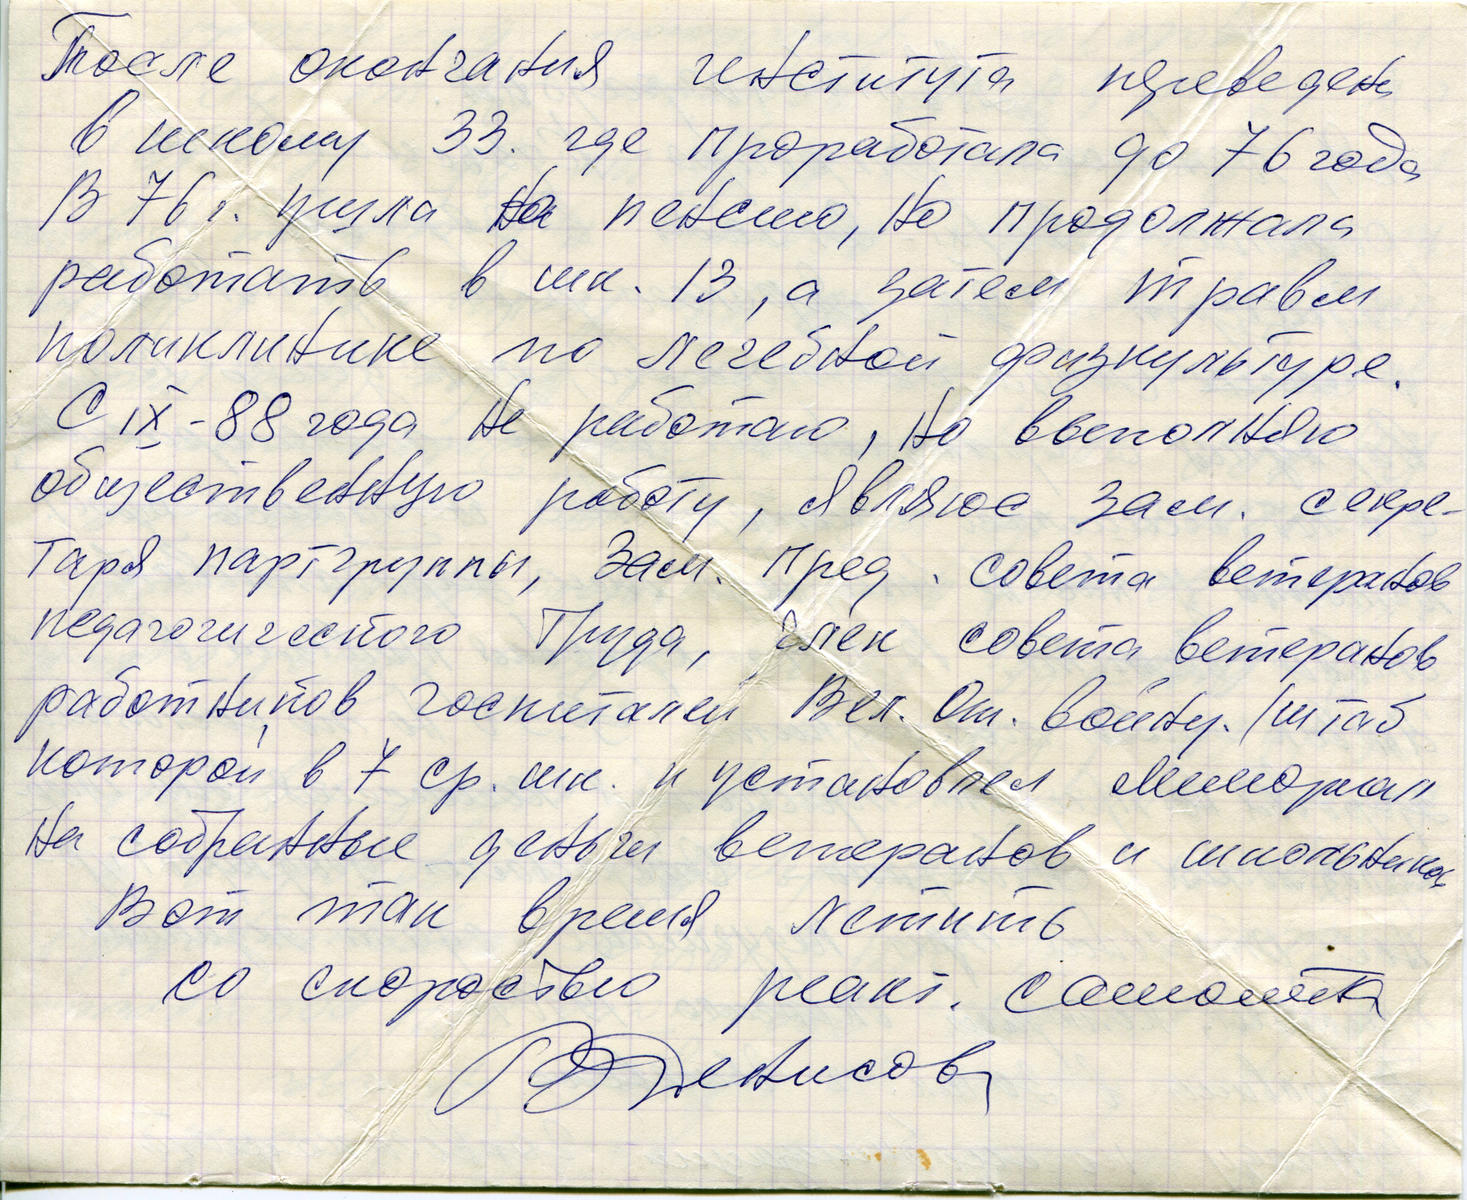 После окончания института переведена
в школу 33. где проработала до 76 года
В 76 г. ушла на пенсию, но продолжала
работать в шк. 13, а затем травм
поликлинике по лечебной физкультуре.
С IX-88 года не работаю, но выполняю
общественную работу, являюс зам. секре-
таря партгруппы, зам. пред. совета ветеранов
педагогического труда, член совета ветеранов
работников госпиталей Вел. От. войны. /штаб
которой в 7 ср. шк. и установлен мемориал
на собранные деньги ветеранов и школьников
Вот так время летить
со скоростью реакт. самолёта
Денисова